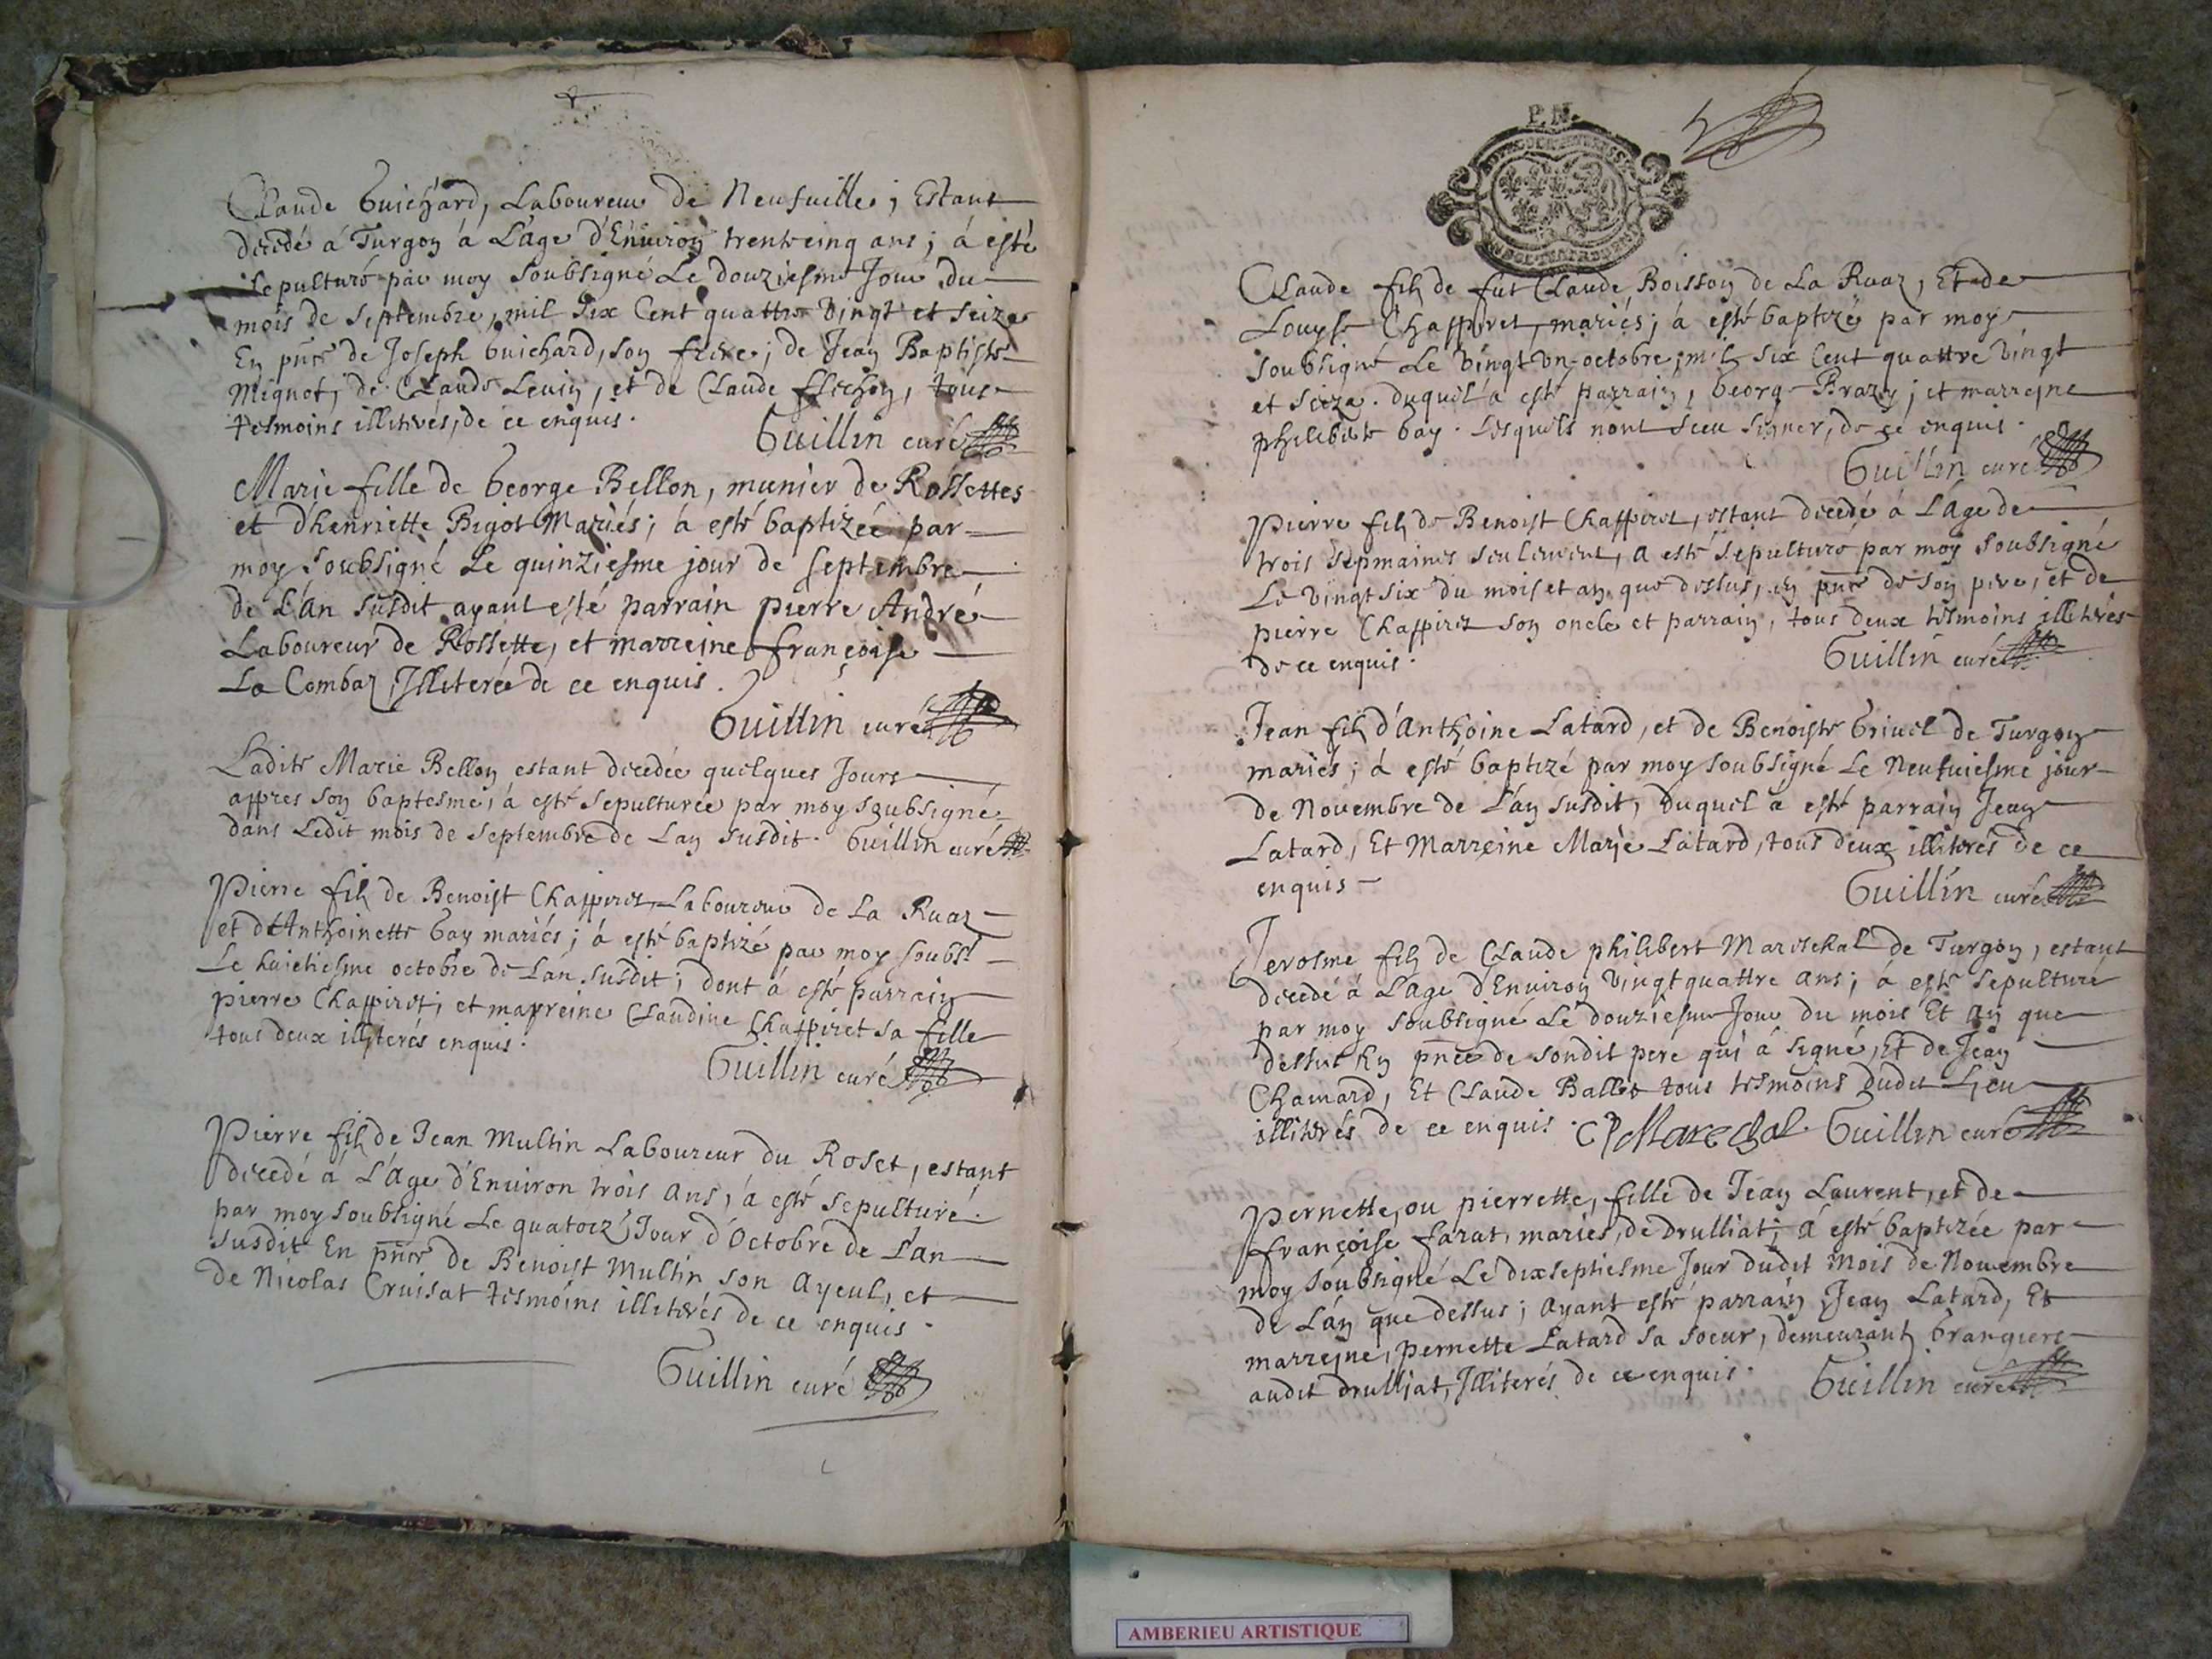 Claude Guichard, Laboureur de Neufuille, Estant
decedé á Turgon á L'age d'Enuiron trentecinq ans; á esté
sepulturé par moy soubsigné Le douziesme Jour du
mois de septembre, mil six Cent quattre Vingt et seize
En pnce de Joseph Guichard, son frere; de Jean Baptiste
Mignot, de Claude Leuin, et de Claude flechon, tous
tesmoins illiterés, de ce enquis.
Guillin curé
Marie fille de George Bellon, munier de Rossettes
et d'henriette Bigot Mariés; á esté baptizée par
moy soubsigné Le quinziesme jour de septembre
de L'an susdit ayant esté parrain pierre André
Laboureur de Rossette, et marreine françoise
La Combaz, Illiterée de ce enquis.
Guillin curé
Ladite Marie Bellon estant decedée quelques Jours
appres son baptesme, á esté sepulturée par moy soubsigné
dans Ledit mois de septembre de Lan susdit. Guillin curé
Pierre filz de Benoist Chappiret Laboureur de La Ruaz
et d'Anthoinette Gay mariés; á esté baptizé par moy soubsé
Le huictiesme octobre de L'an susdit; dont á esté parrain
pierre Chappiret; et marreine Claudine Chappiret sa fille
tous deux illiterés enquis.
Guillin curé
Pierre filz de Jean Multin Laboureur du Roset, estant
decedé á L'Age d'Enuiron trois ans, á esté sepulturé
par moy soubsigné Le quatorzé Jour d'Octobre de L'an
susdit En pnce de Benoist Multin son Ayeul, et
de Nicolas Cruisat tesmoins illiterés de ce enquis.
Guillin curé
P.N.
Claude filz de fut Claude Boisson de La Ruaz, Et de
Louyse Chappiret, mariés; á esté baptizé par moy
soubsigné Le Vingt Un octobre mil six Cent quattre Vingt
et seize. duquel á esté parrain, George Brazy; et marreyne
philiberte Gay. Lesquels nont sceu signer, de ce enquis.
Guillin curé
Pierre filz de Benoist Chappiret, estant decedé á L'age de
trois sepmaines seulement, a esté sepulturé par moy soubsigné
Le Vingt six du mois et an que dessus, en pnce de son pere, et de
pierre Chappiret son oncle et parrain, tous deux tesmoins illiterés
de ce enquis.
Guillin curé
Jean filz d'Anthoine Latard, et de Benoiste Griuel de Turgon
mariés; á esté baptizé par moy soubsigné Le Neufuiesme jour
de Nouembre de L'an susdit, duquel a esté parrain Jean
Latard, Et Marreine Marie Latard, tous deux illiterés de ce
enquis
Guillin curé
Jerosme filz de Claude philibert Mareschal de Turgon, estant
decedé á L'age d'Enuiron Vingt quattre ans; á esté sepulturé
par moy soubsigné Le douziesme Jour du mois Et an que
dessus En pnce de sondit pere qui á signé, Et de Jean
Chamard, Et Claude Ballet tous tesmoins dudit Lieu
illiterés de ce enquis. CP Marechal. Guillin curé
Pernette, ou pierrette, fille de Jean Laurent, et de
françoise farat, mariés, de Drulliat; á esté baptizée par
moy soubsigné Le dixseptiesme Jour dudit Mois de Nouembre
de L'an que dessus; ayant esté parrain Jean Latard, Et
marreyne, pernette Latard sa soeur, demeurantz Grangiers
audit Drulliat, Illiterés de ce enquis.
Guillin curé
AMBERIEU ARTISTIQUE